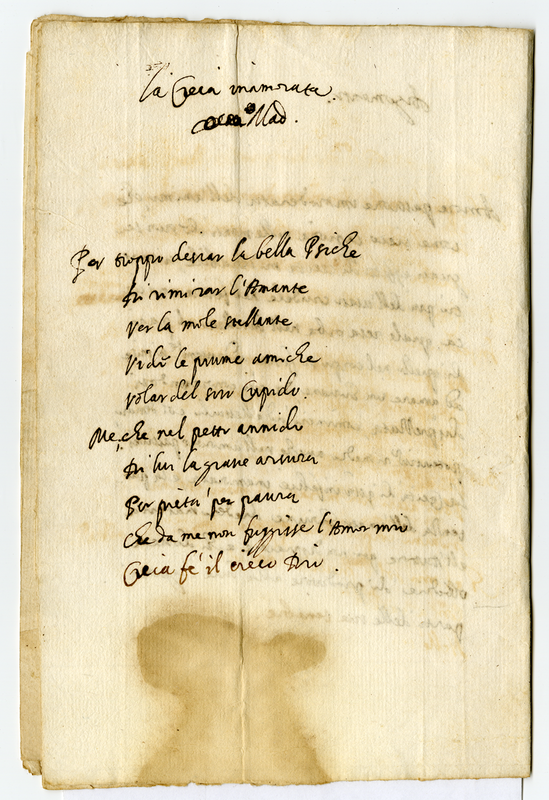 la Cieca inamorata.
Mad.
Per troppo desiar la bella Psiche
Di rimirar l'Amante
Ver la mole stellante
Vidè le piume amiche
Volar del suo Cupido.
Me, che nel petto annido
Di lui la grave arsura
Per pietà per paura
Che da me non fuggisse l'Amor mio
Cieca fe' il cieco Dio.